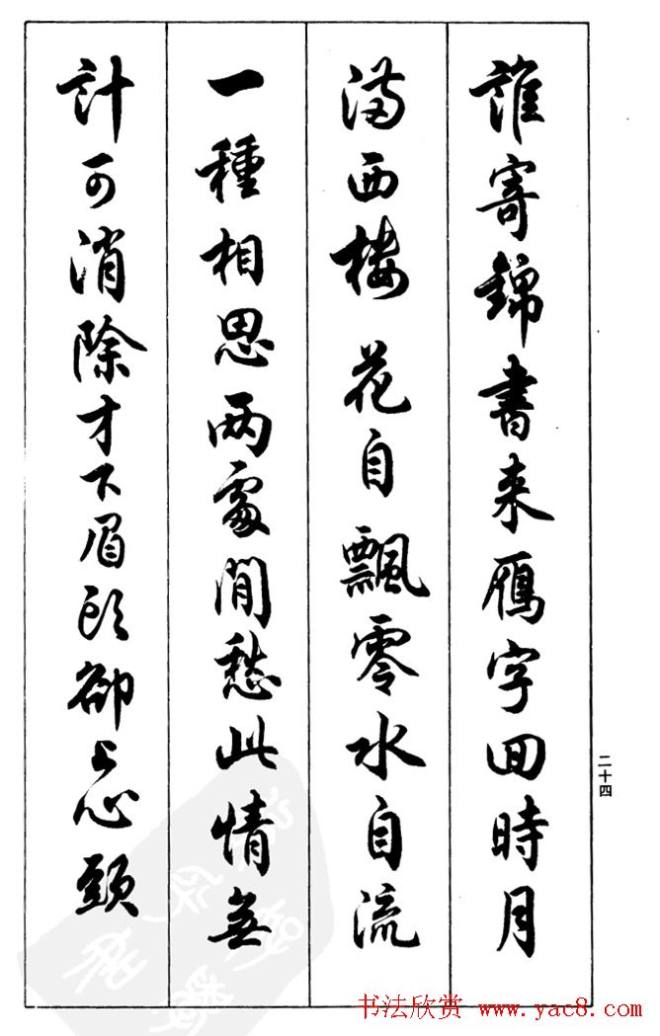 誰寄錦書來鴈字回時月
滿西樓花自飄零水自流
一種相思兩處閒愁此情無
計可消除才下眉頭卻上心頭
二十四
书法欣赏 www.yac8.com